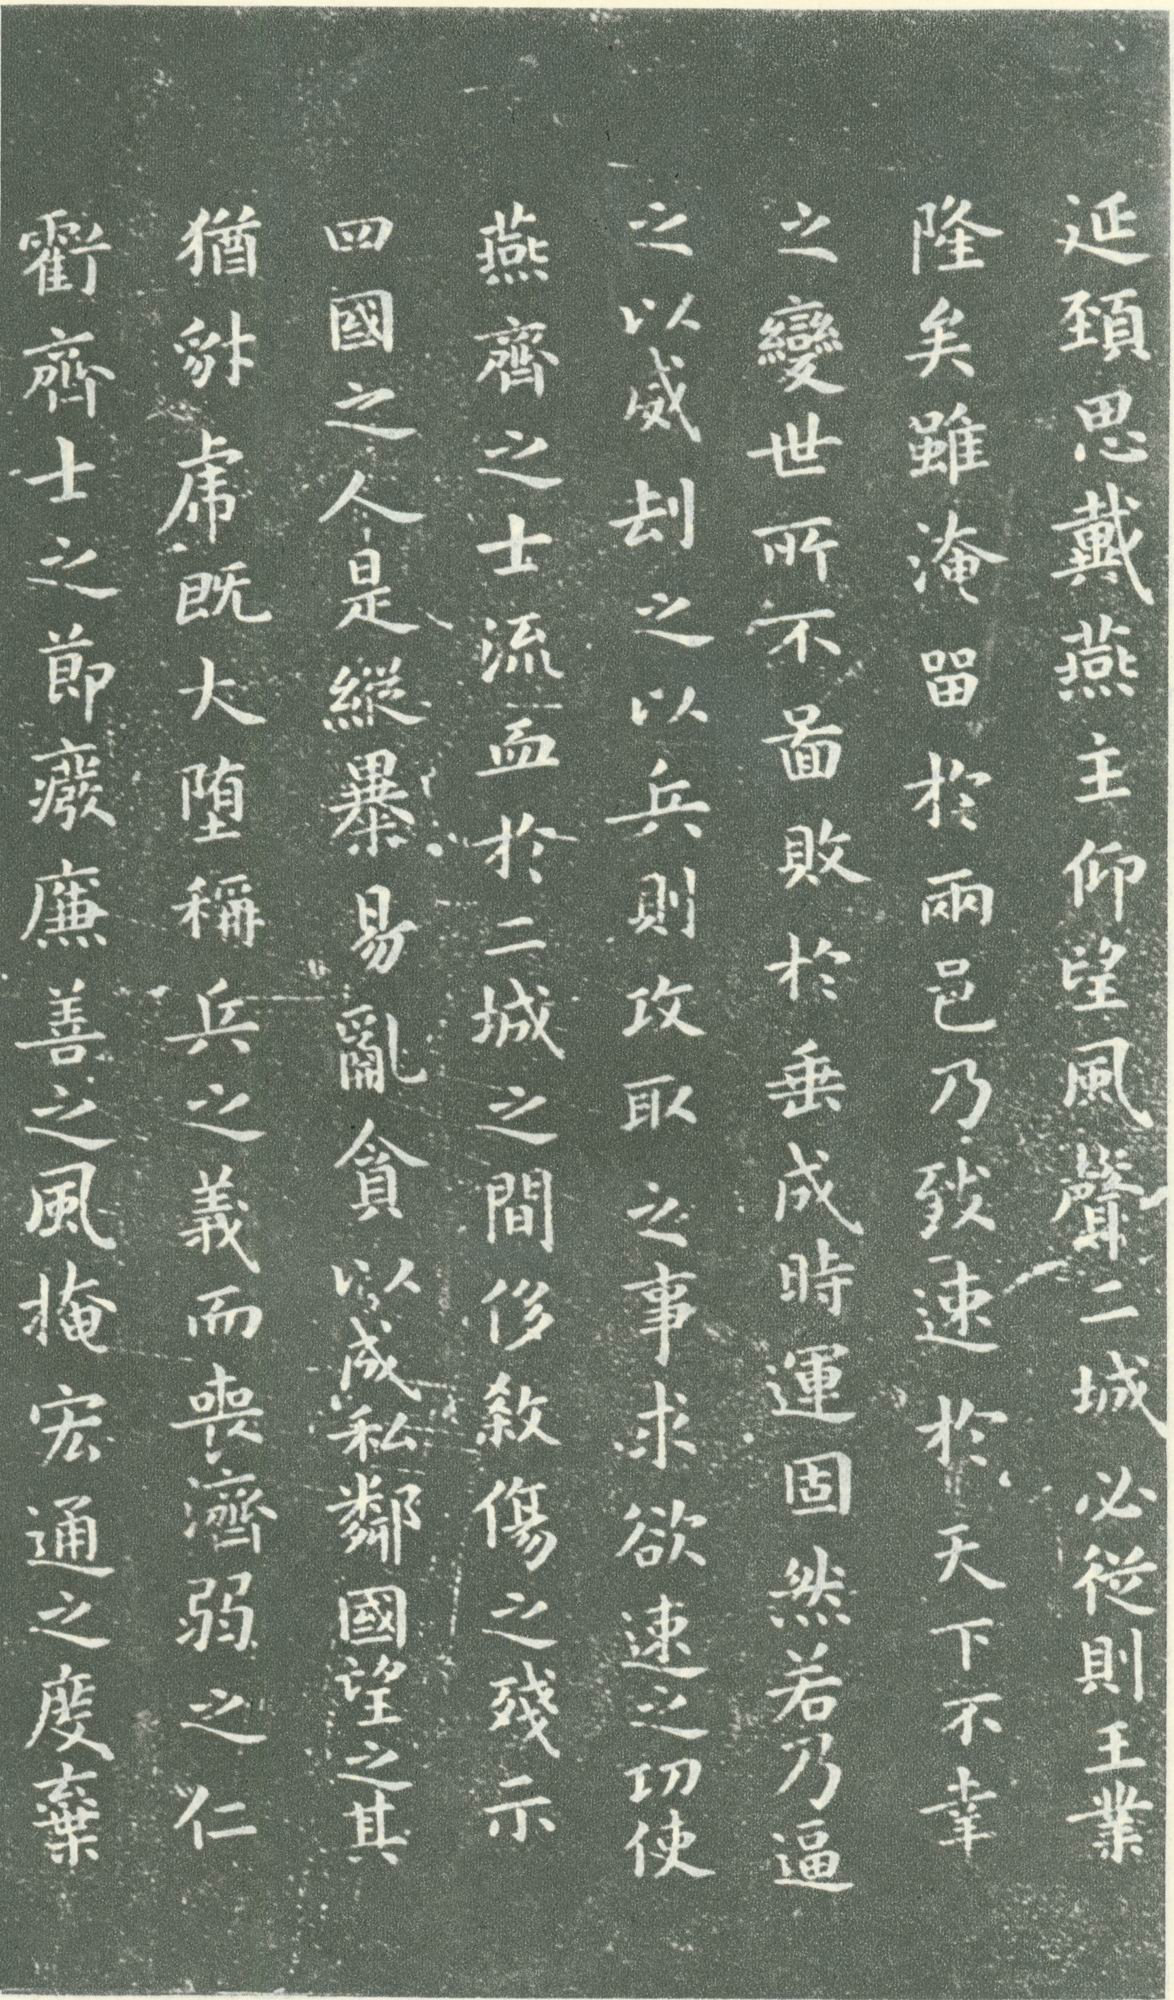 延頚思戴燕主仰望風聲二城必從則王業
隆矣雖淹留於兩邑乃致速於天下不幸
之變世所不啚敗於垂成時運固然若乃逼
之以威刼之以兵則攻取之事求欲速之功使
燕齊之士流血於二城之間侈煞傷之殘示
四國之人是縱暴易亂貪以成私鄰國望之其
猶豺虎既大堕稱兵之義而喪濟弱之仁
虧齊士之節癈廉善之風掩宏通之度棄